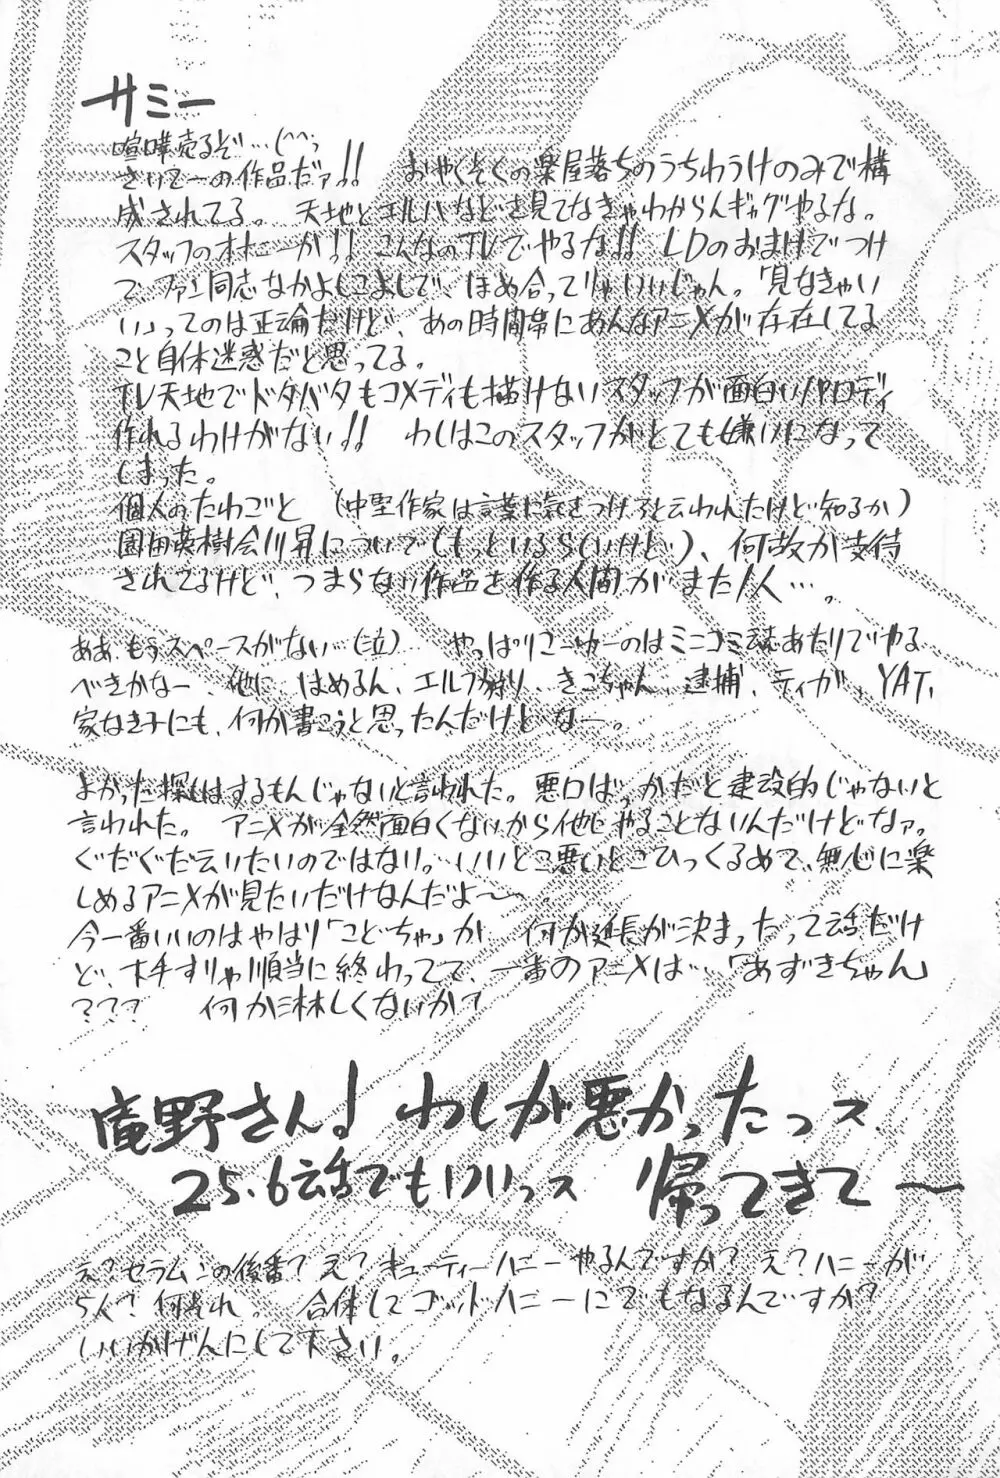 サミー
喧嘩売るぞ…(^^;
さいてーの作品だァ!! おやくそくの楽屋落ちのうちわうけのみで構
成されてる。 天地とエルハなどを見てなきゃわからんギャグやるな。
スタッフのオナニーか!! こんなのTVでやるな!! LDのおまけでつけ
て、ファン同志なかよしこよしで、ほめ合ってりゃいいじゃん。「見なきゃい
い」ってのは正論だけど、あの時間帯にあんなアニメが存在してる
こと自体迷惑だと思ってる。
TV天地でドタバタもコメディも描けないスタッフが面白いパロディ
作れるわけがない!! わしはこのスタッフがとても嫌いになって
しまった。
個人のたわごと (中堅作家は言葉に気をつけろと云われたけど知るか)
園田英樹会川昇について(もっといるらしいけど)、何故か支持
されてるけど、つまらない作品を作る人間がまた1人…。
ああ、もうスペースがない…(泣) やっぱりこーゆーのはミニコミ誌あたりでやる
べきかなー、他に はめるん、エルフ狩り、きこちゃん、逮捕、ティガ、YAT、
家なき子にも、何か書こうと思ったんだけどなー。
よかった探しはするもんじゃないと言われた。悪口ばっかだと建設的じゃないと
言われた。 アニメが全然面白くないから他にやることないんだけどなァ。
ぐだぐだ云いたいのではない。いいとこ悪いとこひっくるめて、無心に楽
しめるアニメが見たいだけなんだよ〜。
今一番いいのはやはり「こどちゃ」か 何か延長が決まったって話だけ
ど、ホチすりゃ順当に終わってて、一番のアニメは…「あずきちゃん」
??? 何か淋しくないか?
庵野さん! わしが悪かったっス、
25.6話でもいいっス 帰ってきて〜
え?セラムンの後番?え?キューティーハニーやるんですか? え?ハニーが
5人?何それ。 合体してゴッドハニーにでもなるんですか?
いいかげんにして下さい。